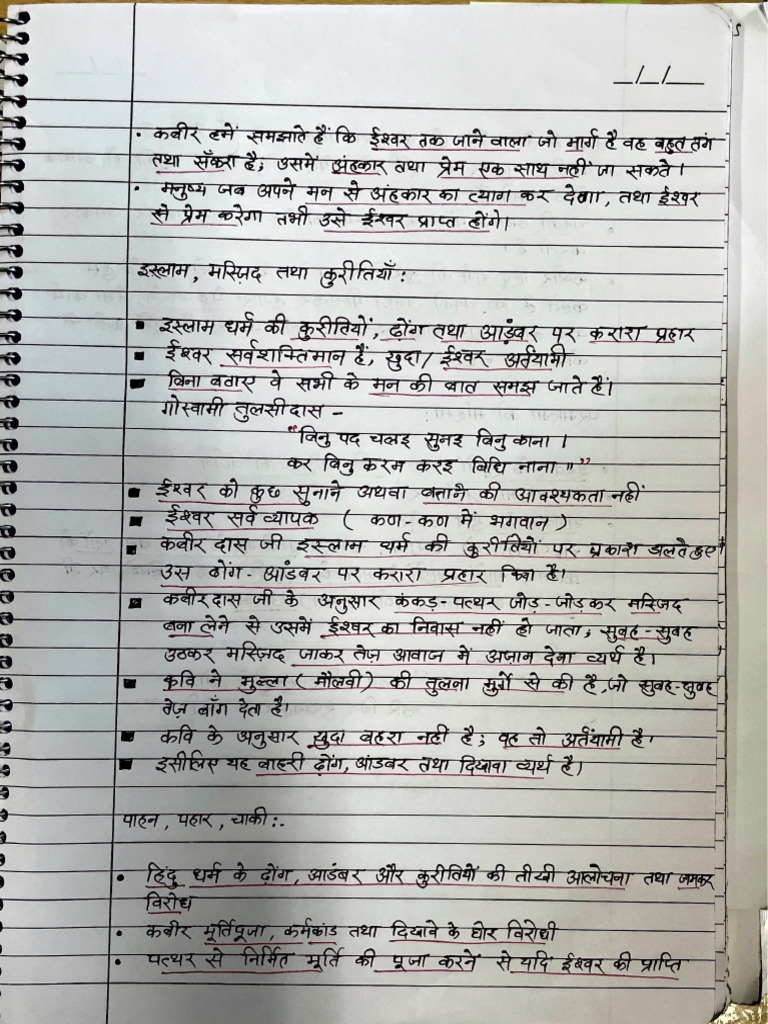 _/_/__
• कबीर हमें समझाते हैं कि ईश्वर तक जाने वाला जो मार्ग है वह बहुत तंग
तथा सँकरा है; उसमें अंहकार तथा प्रेम एक साथ नहीं जा सकते।
• मनुष्य जब अपने मन से अंहकार का त्याग कर देगा, तथा ईश्वर
से प्रेम करेगा तभी उसे ईश्वर प्राप्त होंगे।
इस्लाम, मस्ज़िद तथा कुरीतियाँ:
▪ इस्लाम धर्म की कुरीतियों, ढ़ोंग तथा आडंबर पर करारा प्रहार
▪ ईश्वर सर्वशक्तिमान हैं, खुदा/ ईश्वर अर्तंयामी
▪ बिना बताए वे सभी के मन की बात समझ जाते हैं।
गोस्वामी तुलसीदास –
"बिनु पद चलइ सुनइ बिनु काना ।
कर बिनु करम करइ बिधि नाना ॥"
▪ ईश्वर को कुछ सुनाने अथवा बताने की आवश्यकता नहीं
▪ ईश्वर सर्व व्यापक ( कण-कण में भगवान )
▪ कबीर दास जी इस्लाम धर्म की कुरीतियों पर प्रकाश डालते हुए
उस ढोंग-आंडबर पर करारा प्रहार किया है।
▪ कबीरदास जी के अनुसार कंकड़-पत्थर जोड़-जोड़कर मस्ज़िद
बना लेने से उसमें ईश्वर का निवास नहीं हो जाता; सुबह-सुबह
उठकर मस्ज़िद जाकर तेज़ आवाज में अज़ान देना व्यर्थ है।
▪ कवि ने मुल्ला ( मौलवी) की तुलना मुर्गे से की है, जो सुबह-सुबह
तेज़ बाँग देता है।
▪ कवि के अनुसार खुदा बहरा नहीं है; वह तो अर्तंयामी है।
▪ इसीलिए यह बाहरी ढ़ोंग, आंडबर तथा दिखावा व्यर्थ है।
पाहन, पहार, चाकी:.
• हिंदु धर्म के ढ़ोंग, आडंबर और कुरीतियों की तीखी आलोचना तथा जमकर
विरोध
• कबीर मूर्तिपूजा, कर्मकांड तथा दिखावे के घोर विरोधी
• पत्थर से निर्मित मूर्ति की पूजा करने से यदि ईश्वर की प्राप्ति